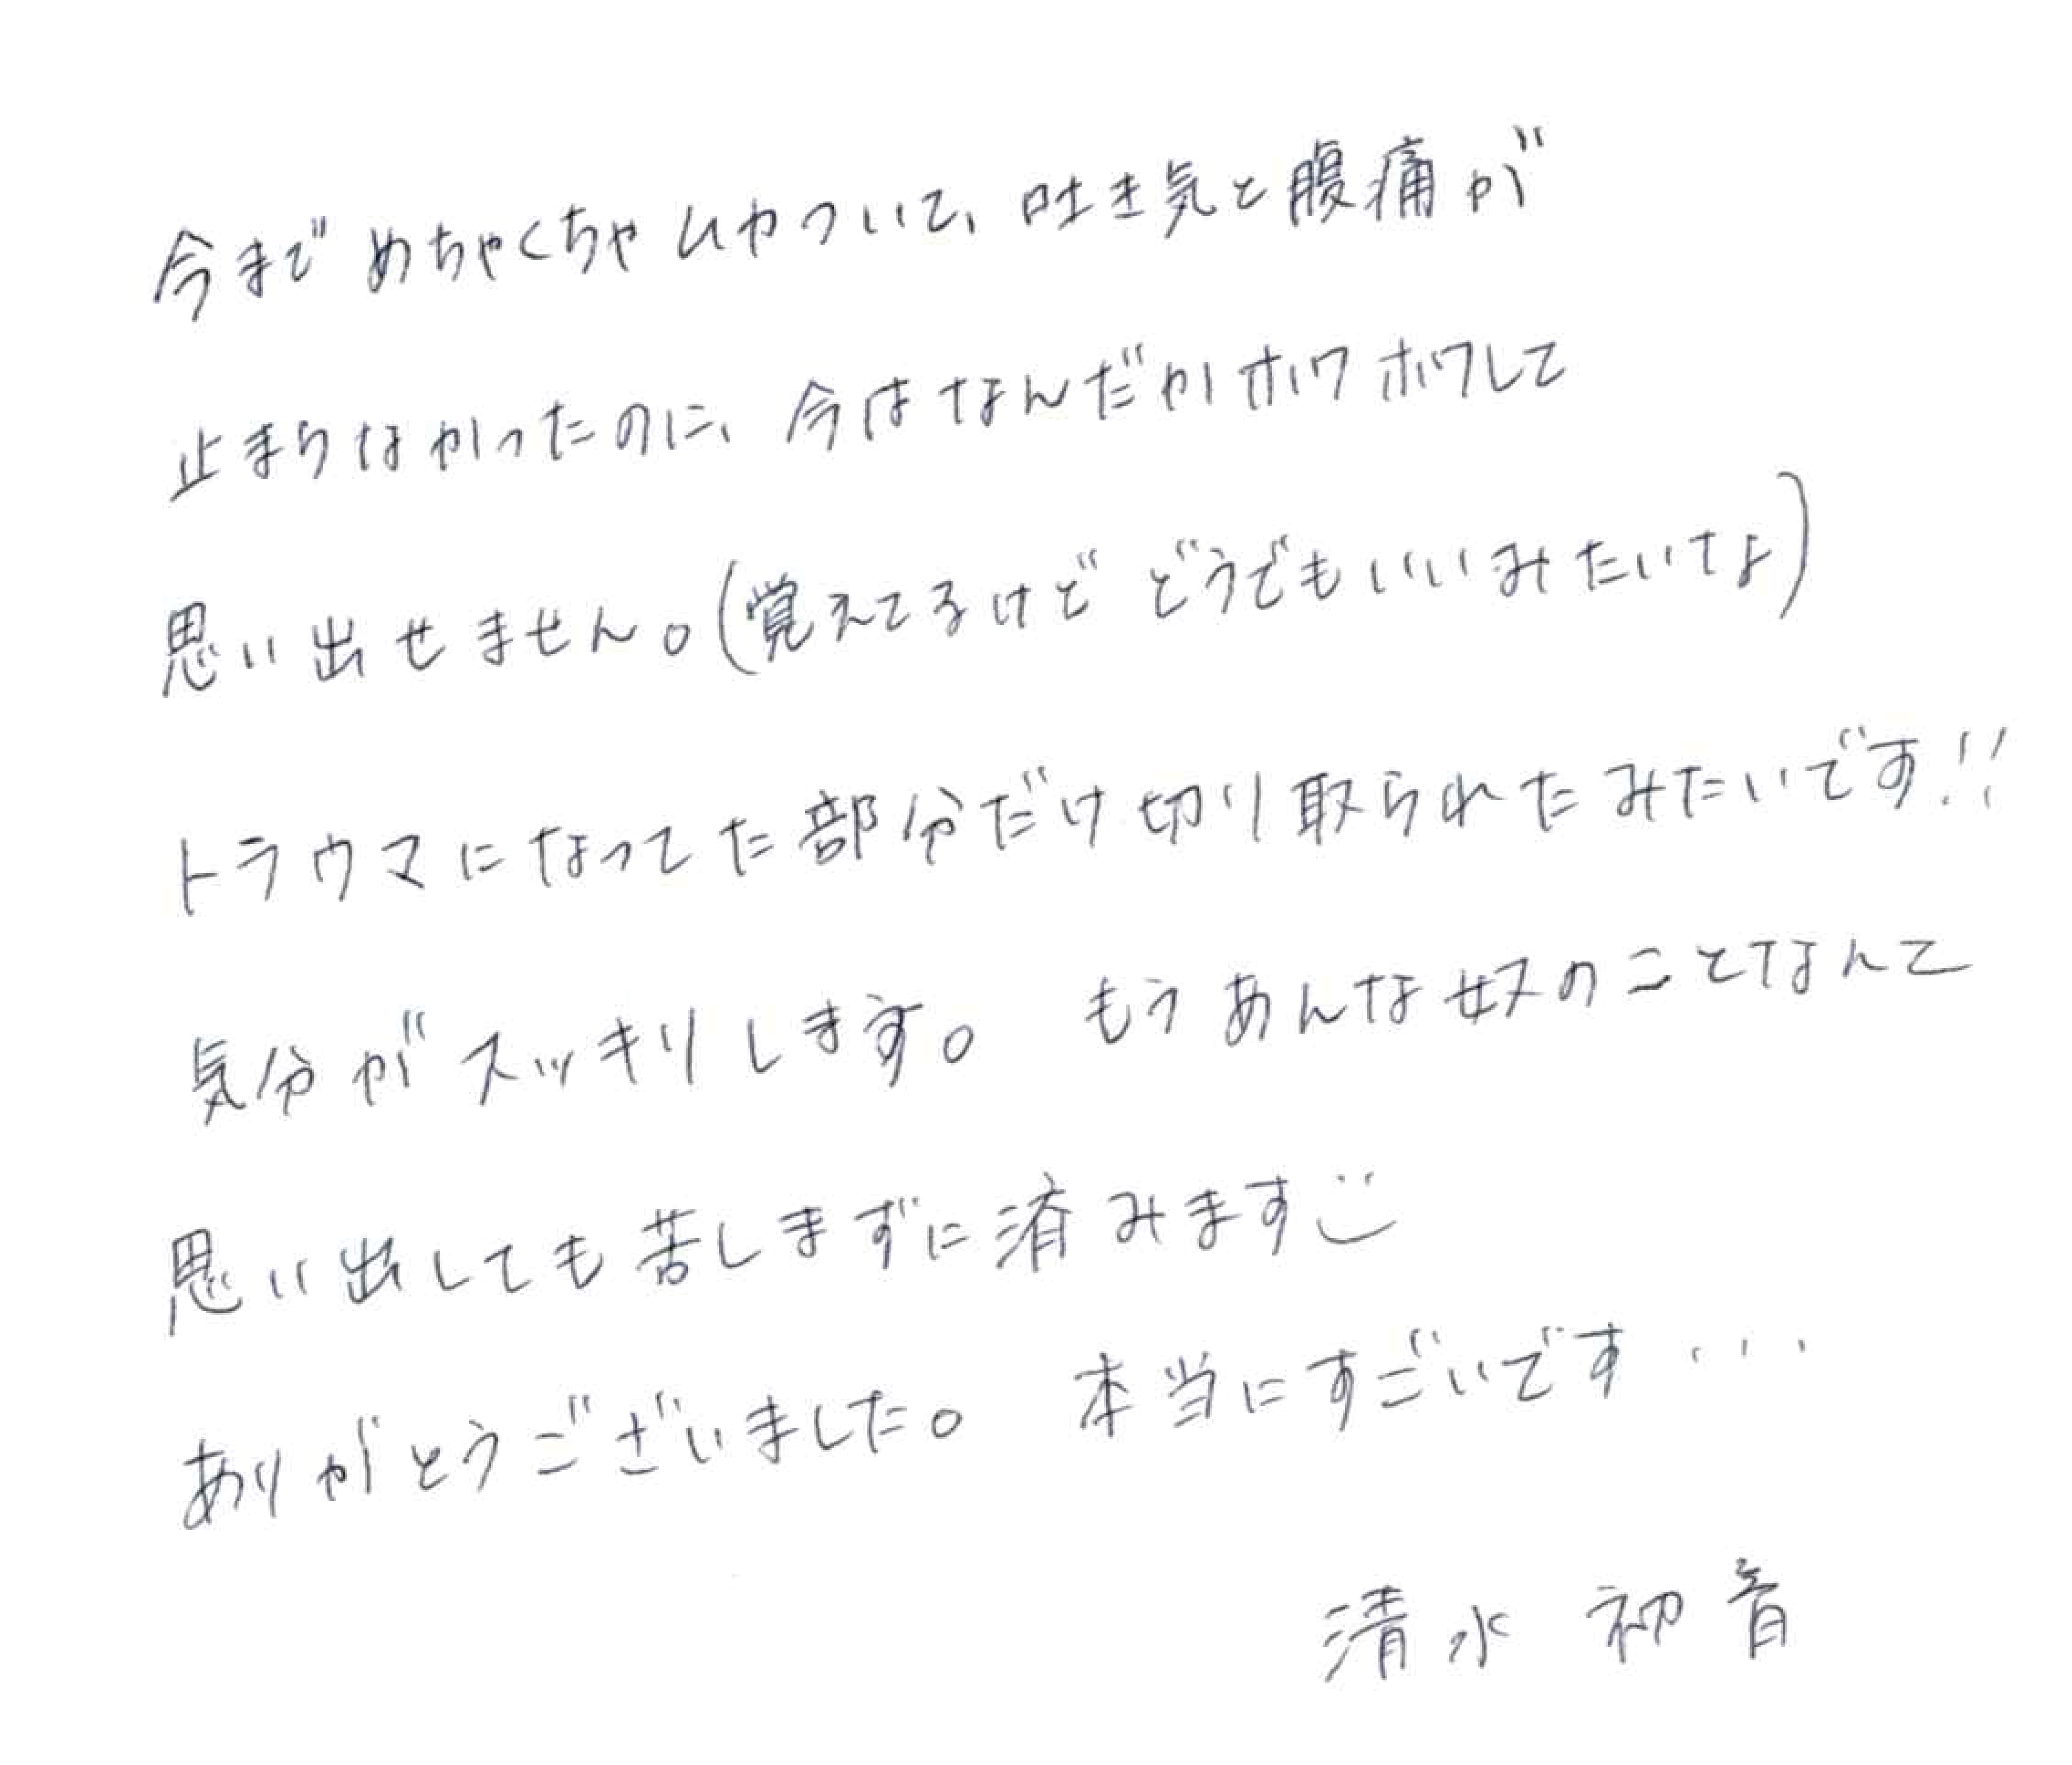 今までめちゃくちゃムカついて、吐き気と腹痛が
止まらなかったのに、今はなんだかホワホワして
思い出せません。(覚えてるけどどうでもいいみたいな)
トラウマになってた部分だけ切り取られたみたいです!!
気分がスッキリします。 もうあんな奴のことなんて
思い出しても苦しまずに済みます
ありがとうございました。 本当にすごいです...
清水 初音